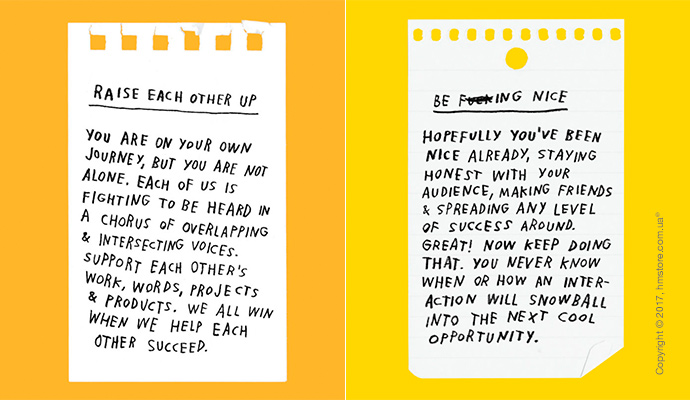 RAISE EACH OTHER UP
YOU ARE ON YOUR OWN
JOURNEY, BUT YOU ARE NOT
ALONE. EACH OF US IS
FIGHTING TO BE HEARD IN
A CHORUS OF OVERLAPPING
& INTERSECTING VOICES.
SUPPORT EACH OTHER'S
WORK, WORDS, PROJECTS
& PRODUCTS. WE ALL WIN
WHEN WE HELP EACH
OTHER SUCCEED.
BE FUCKING NICE
HOPEFULLY YOU'VE BEEN
NICE ALREADY, STAYING
HONEST WITH YOUR
AUDIENCE, MAKING FRIENDS
& SPREADING ANY LEVEL
OF SUCCESS AROUND.
GREAT! NOW KEEP DOING
THAT. YOU NEVER KNOW
WHEN OR HOW AN INTER-
ACTION WILL SNOWBALL
INTO THE NEXT COOL
OPPORTUNITY.
Copyright © 2017, hmstore.com.ua®